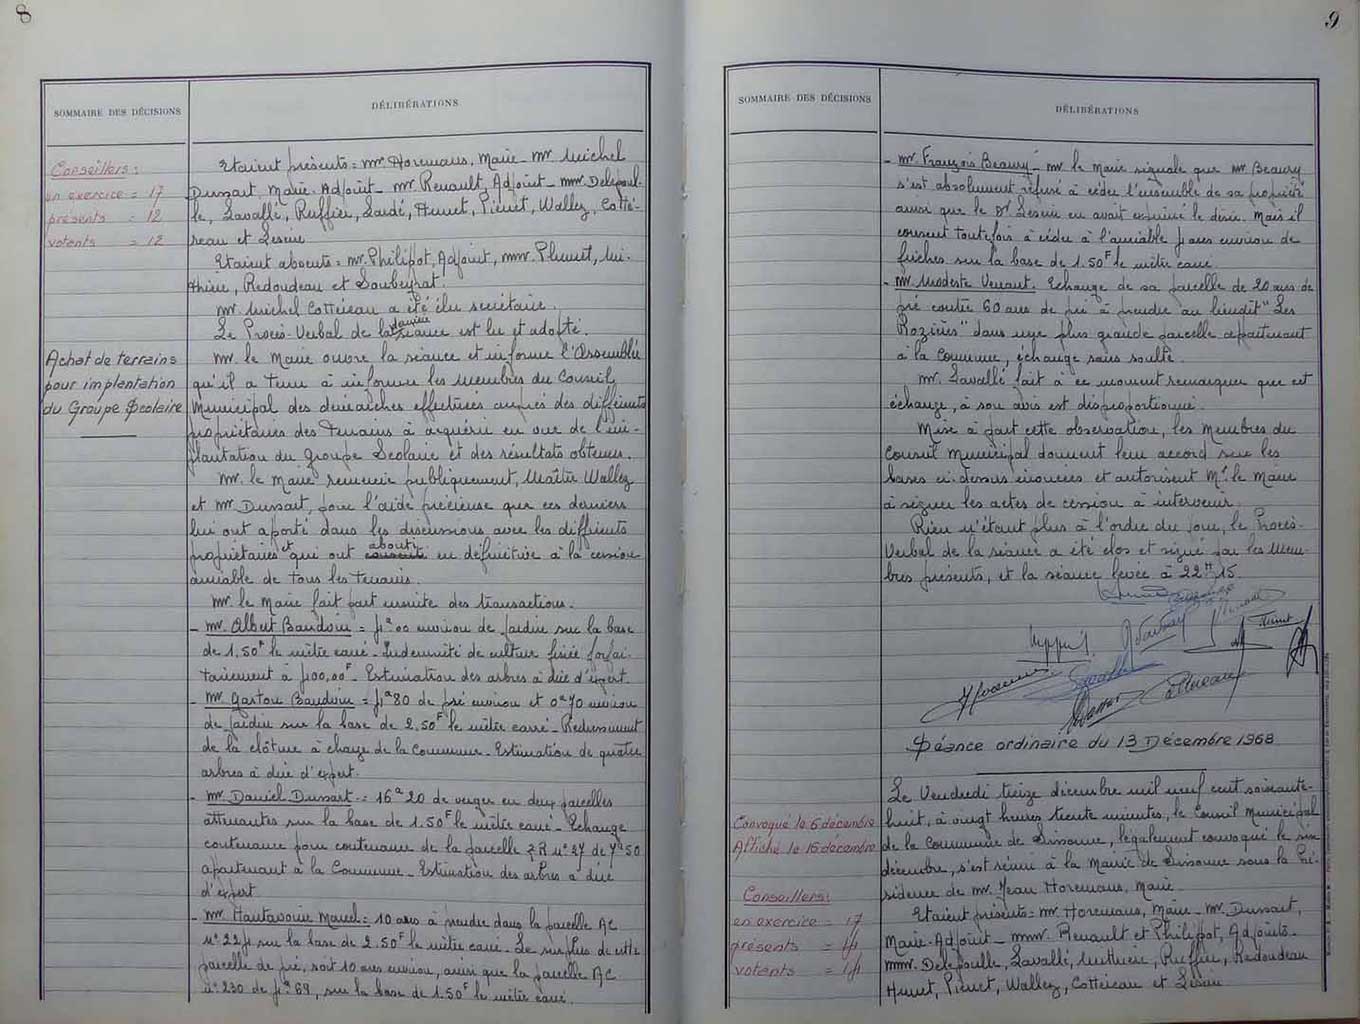 8
SOMMAIRE DES DÉCISIONS
DÉLIBÉRATIONS
Conseillers:
en exercice = 17
présents = 12
votents = 12
Achat de terrains
pour implantation
du Groupe Scolaire
Etaient présents = Mr Horemans, Maire - Mr Michel
Dussart Maire-Adjoint - Mr Renault, Adjoint - MM. Delepoul-
le, Lavallé, Ruffier, Hunet, Pienet, Wallez, Cotté-
reau et Lesein.
Etaient absents = Mr. Philipot, Adjoint, MM. Lui-
thière, Redoudeau et Soubeyrat.
Mr Michel Cottereau a été élu secrétaire.
Le Procès-Verbal de la dernière séance est lu et adopté.
Mr. le Maire ouvre la séance et informe l'Assemblée
qu'il a tenu à informer les Membres du Conseil
Municipal des démarches effectuées auprès des différents
propriétaires des terrains à acquérir en vue de l'im-
plantation du Groupe Scolaire et des résultats obtenus.
Mr. le Maire remercie publiquement, Maître Wallez
et Mr. Dussart, pour l'aide précieuse que ces derniers
lui ont aporté dans les discussions avec les différents
propriétaires et qui ont abouti en définitive à la cession
amiable de tous les terrains.
Mr. le Maire fait part ensuite des transactions.
- Mr. Albert Baudoin = 1a00 environ de jardin sur la base
de 1.50F le mètre carré - Indemnité de culture fixée forfai-
tairement à 100,00F - Estimation des arbres à dire d'expert.
- Mr Gaston Baudoin = 1a80 de pré environ et 0a70 environ
de jardin sur la base de 2.50F le mètre carré - Redressement
de la clôture à charge de la Commune - Estimation de quatre
arbres à dire d'expert.
- Mr Daniel Dussart = 16a20 de verger en deux parcelles
attenantes sur la base de 1.50F le mètre carré - Echange
contenance pour contenance de la parcelle ZR n°27 de 7a50
apartenant à la Commune - Estimation des arbres à dire
d'expert.
- Mr Hautavoine Marcel = 10 ares à prendre dans la parcelle AC
n°221 sur la base de 2.50F le mètre carré - Le surplus de cette
parcelle de pré, soit 10 ares environ, ainsi que la parcelle AC
n°230 de 1a69, sur la base de 1.50F le mètre carré.
9
SOMMAIRE DES DÉCISIONS
DÉLIBÉRATIONS
- Mr. François Beaury - Mr le Maire signale que Mr Beaury
s'est absolument refusé à céder l'ensemble de sa propriété
ainsi que le Dr Lesein en avait exprimé le désir. Mais il
consent toutefois à céder à l'amiable 1 ares environ de
friches sur la base de 1.50F le mètre carré.
- Mr Modeste Venant. Echange de sa parcelle de 20 ares de
pré contre 60 ares de pré à prendre au lieudit "Les
Rozières" dans une plus grande parcelle apartenant
à la Commune, échange sans soulte.
Mr. Lavallé fait à ce moment remarquer que cet
échange, à son avis est disproportionné.
Mise à part cette observation, les Membres du
Conseil Municipal donnent leur accord sur les
bases ci-dessus énoncées et autorisent Mr. le Maire
à signer les actes de cession à intervenir.
Rien n'étant plus à l'ordre du jour, le Procès-
Verbal de la séance a été clos et signé par les Mem-
bres présents, et la séance levée à 22H15.
Séance ordinaire du 13 Décembre 1968
Convoqué le 6 décembre
Affiché le 16 décembre
Conseillers:
en exercice = 17
présents = 14
votents = 14
Le Vendredi treize décembre mil neuf cent soixante-
huit, à vingt heures trente minutes, le Conseil Municipal
de la Commune de Sissonne, légalement convoqué le six
décembre, s'est réuni à la Mairie de Sissonne sous la Pré-
sidence de Mr. Jean Horemans, Maire.
Etaient présents = Mr Horemans, Maire - Mr. Dussart,
Maire-Adjoint - MM. Renault et Philipot, Adjoints -
MM. Delepoulle, Lavallé, Luthière, Ruffier, Redoudeau
Hunet, Pienet, Wallez, Cottereau et Lesein